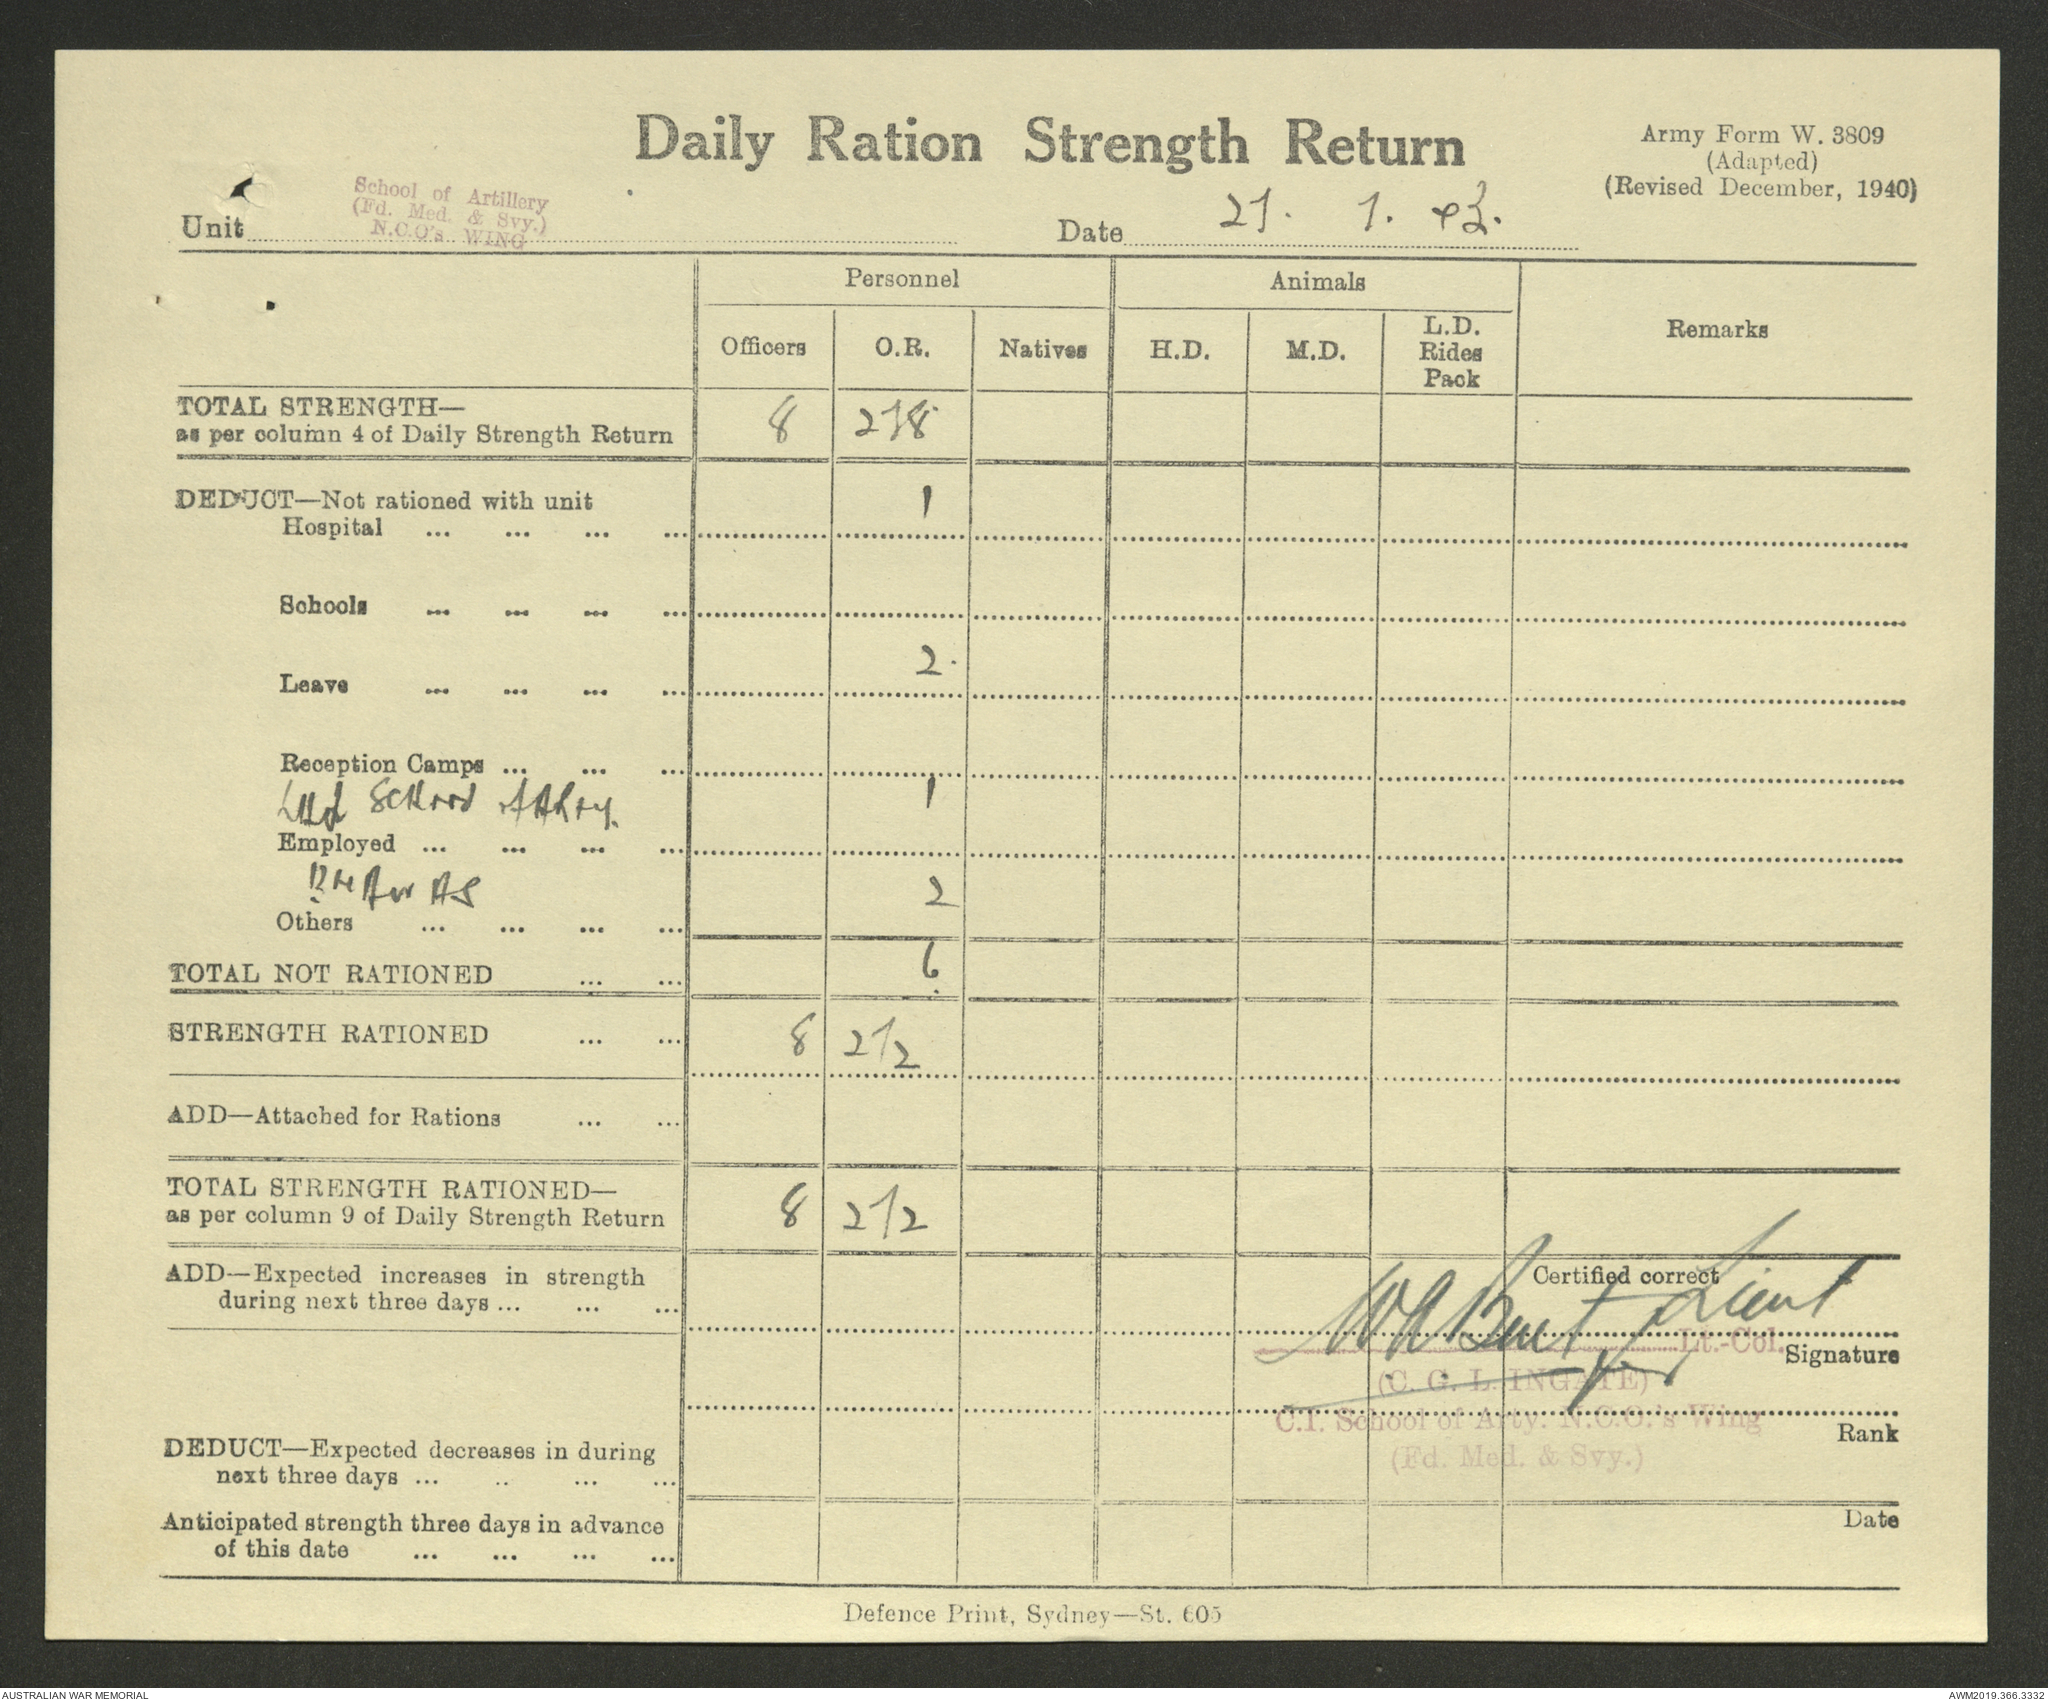 Daily Ration Strength Return
Army Form W. 3809
(Adapted)
(Revised December, 1940)
School of Artillery
(Fd. Med. & Svy.)
N.C.O's WING
Unit
Date 27. 1. 43.
Personnel
Animals
Remarks
Officers
O.R.
Natives
H.D.
M.D.
L.D.
Rides
Pack
TOTAL STRENGTH—
as per column 4 of Daily Strength Return 8 278
DEDUCT—Not rationed with unit
Hospital ... ... ... ... 1
Schools ... ... ... ...
Leave ... ... ... ... 2.
Reception Camps ... ... ...
School of 1
Employed ... ... ... ...
2
Others ... ... ... ...
TOTAL NOT RATIONED ... ... 6
STRENGTH RATIONED ... ... 8 272
ADD—Attached for Rations ... ...
TOTAL STRENGTH RATIONED—
as per column 9 of Daily Strength Return 8 272
ADD—Expected increases in strength
during next three days ... ... ...
Certified correct
Lieut
Lt.-Col.
Signature
for
(C. G. L. INGATE)
C.I. School of Arty. N.C.O.'s Wing
(Fd. Med. & Svy.)
Rank
DEDUCT—Expected decreases in during
next three days ... .. ... ...
Anticipated strength three days in advance
of this date ... ... ... ...
Date
Defence Print, Sydney—St. 605
AUSTRALIAN WAR MEMORIAL
AWM2019.366.3332